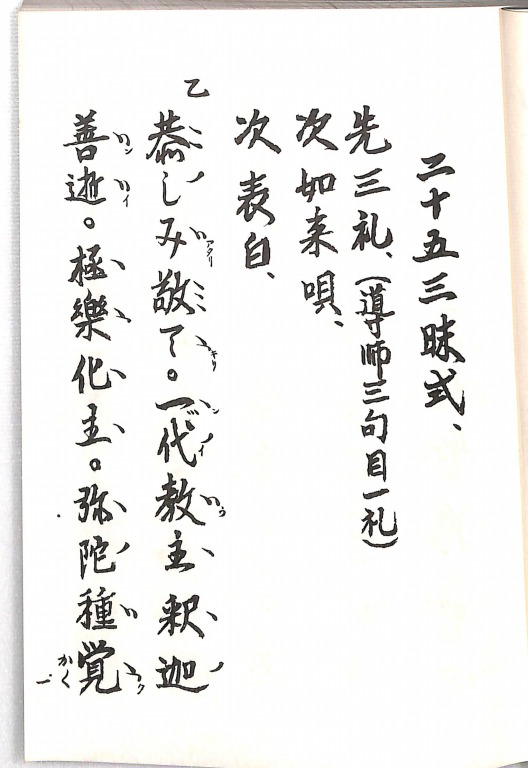 二十五三昧式、
先三礼、（導師三句目一礼）
次如来唄、
次表白、
乙
恭しみ敬て。一代教主釈迦
善逝。極樂化主。弥陀種覚
かく